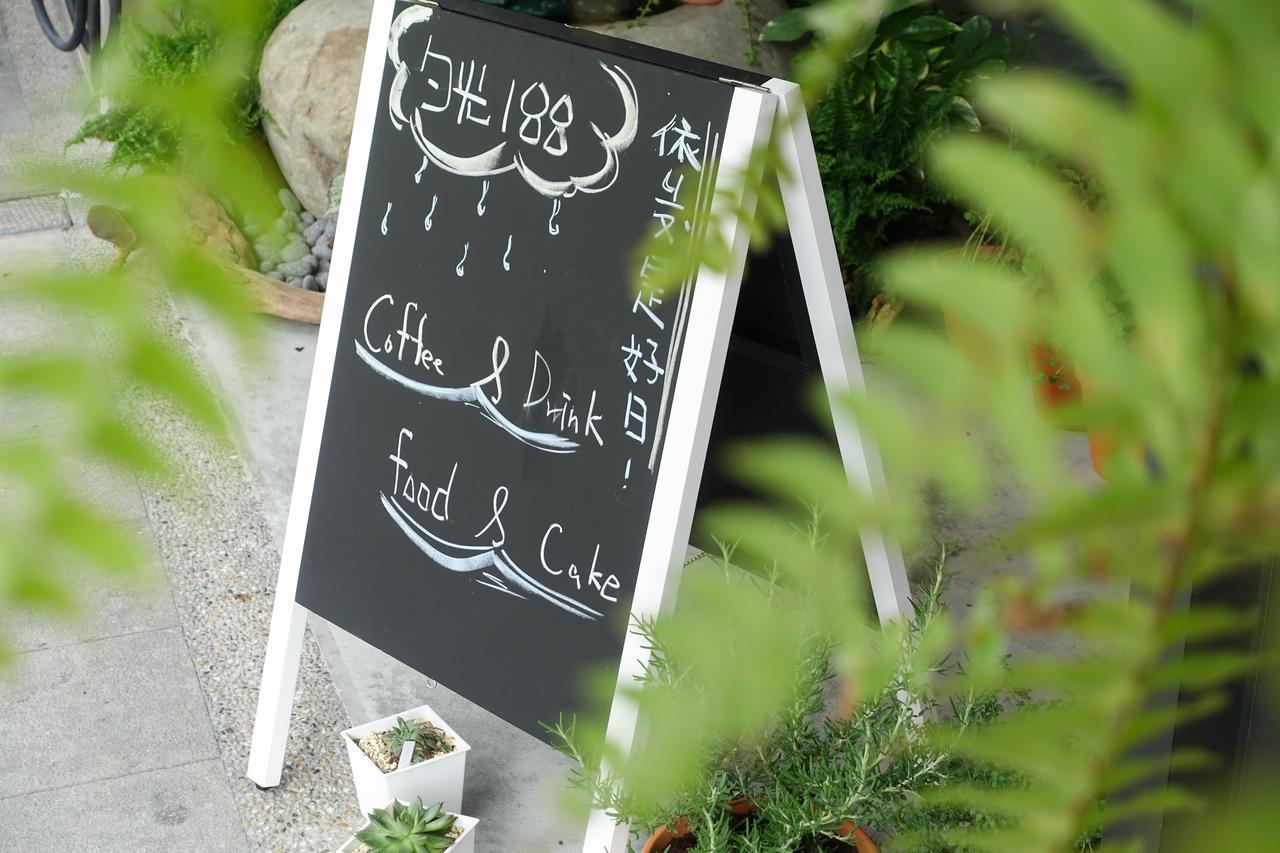 勻光188
Coffee & Drink
food & Cake
依然是好日!